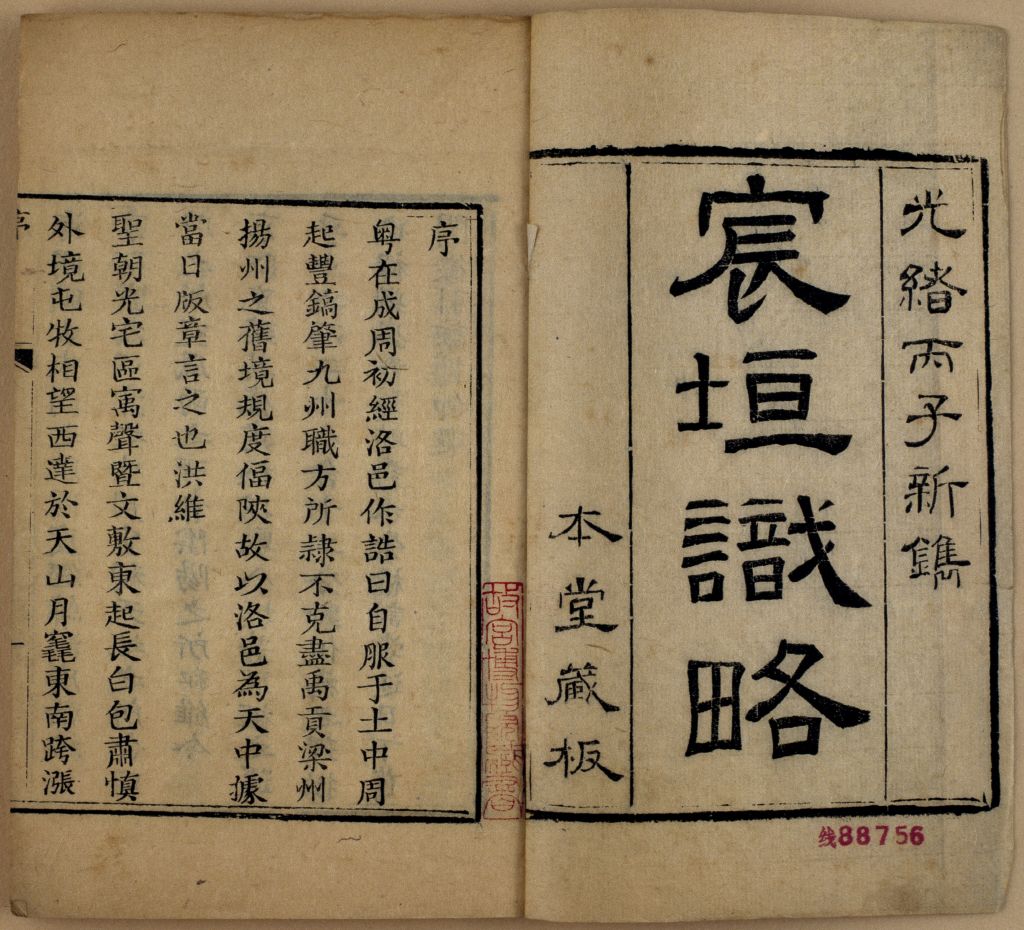 光緒丙子新鐫
宸垣識略
本堂藏板
线88756
故宮博物院藏書
序
粵在成周初經洛邑作誥曰自服于土中周
起豐鎬肇九州職方所隸不克盡禹貢梁州
揚州之舊境規度偪陝故以洛邑為天中據
當日版章言之也洪維
聖朝光宅區寓聲暨文敷東起長白包肅慎
外境屯牧相望西達於天山月竁東南跨漲
序
一